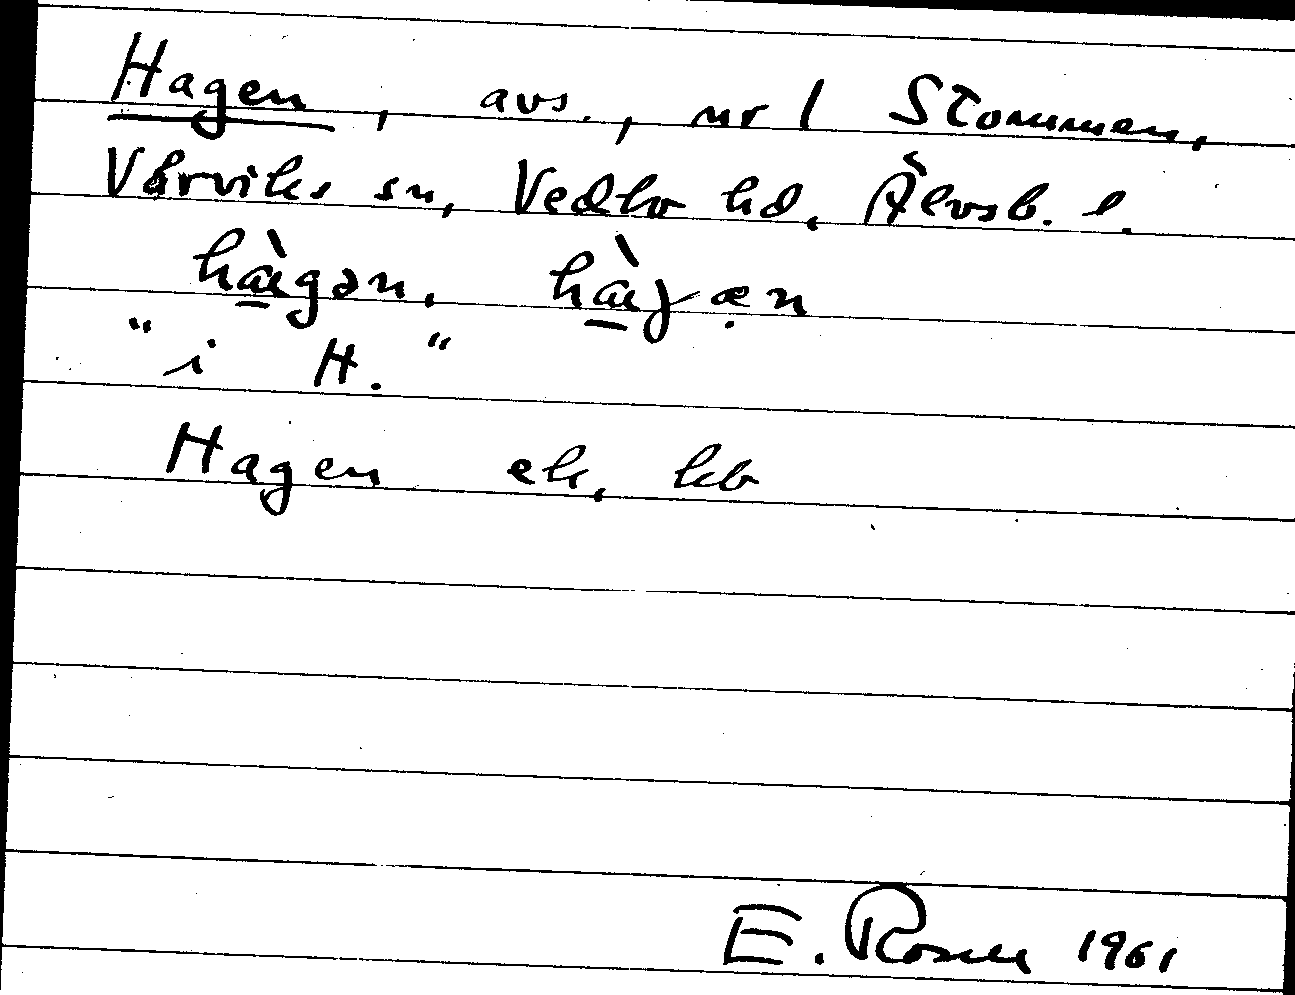 Hagen, avs., nr 1 Stommen,
Vårviks sn, Vedbo hd, Älvsb. l.
hàgən,
"i H."
Hagen ek, kb
E. Rosell 1961